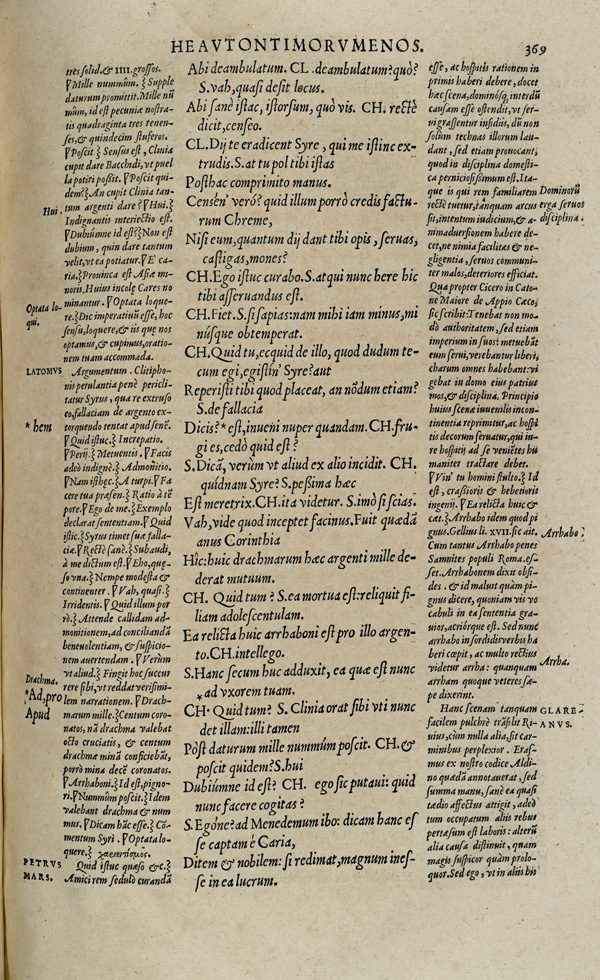 HEAVTONTIMORVMENOS.
369
tres solid. & IIII. grossos.
¶Mille nummûm.} Supple
daturum promittit. Mille nũ
mûm, id est pecuniæ nostra-
tis quadraginta tres renen-
ses, & quindecim stuferos.
¶Poscit.} Sensus est, Clinia
cupit dare Bacchidi, vt puel
la potiri possit. ¶Poscit qui-
dem?} An cupit Clinia tan-
Hui.
tum argenti dare? ¶Hui.}
Indignantis interiectio est.
¶Dubiúmne id est?} Non est
dubium, quin dare tantum
velit, vt ea potiatur. ¶E Ca-
ria.} Prouinca est Asiæ mi-
noris. Huius incolæ Cares no
Optata lo-
qui.
minantur. ¶Optata loque-
re.} Dic imperatiuũ esse, hoc
sensu, loquere, & iis que nos
optamus, & cupimus, oratio-
nem tuam accommoda.
LATOMVS
Argumentum. Clitipho-
nis petulantia penè pericli-
tatur Syrus, qua re extruso
eo, fallaciam de argento ex-
* hem
torquendo tentat apud senẽ.
¶Quid istuc.} Increpatio.
¶Perij.} Metuentis. ¶Facis
adeò indignè.} Admonitio.
¶Nam isthęc.} A turpi. ¶Fa
cere tua præsen.} Ratio à tẽ
pore. ¶Ego de me.} Exemplo
declarat sententiam. ¶Quid
istic.} Syrus timet suæ falla-
ciæ. ¶Rectè sanè.} Subaudi,
à me dictum est. ¶Eho, quę-
so vna.} Nempe modestia &
continenter. ¶Vah, quasi.}
Irridentis. ¶Quid illum por
rò.} Attende callidam ad-
monitionem, ad conciliandã
beneuolentiam, & suspicio-
nem auertendam. ¶Verùm
vt aliud.} Fingit hoc succur
Drachma.
rere sibi, vt reddat verisimi-
*Ad, pro
lem narrationem. ¶Drach-
Apud
marum mille.} Centum coro-
natos, nã drachma valebat
octo cruciatis, & centum
drachmæ minã conficiebãt,
porrò mina decẽ coronatos.
¶Arrhaboni.} Id est, pigno-
ri. ¶Nummûm poscit.} Idem
valebant drachma & num
mus. ¶Dicam hãc esse.} Cõ-
mentum Syri. ¶Optata lo-
quere.}
PETRVS
MARS.
Quid istuc quæso &c.}
Amici rem sedulò curandã
Abi deambulatum. CL. deambulatum? quò?
S. vah, quasi desit locus.
Abi sanè istac, istorsum, quò vis. CH. rectè
dicit, censeo.
CL. Dij te eradicent Syre, qui me istinc ex-
trudis. S. at tu pol tibi istas
Posthac comprimito manus.
Censén' verò? quid illum porrò credis factu-
rum Chreme,
Nisi eum, quantum dij dant tibi opis, seruas,
castigas, mones?
CH. Ego istuc curabo. S. atqui nunc here hic
tibi asseruandus est.
CH. Fiet. S. si sapias: nam mihi iam minus, mi
núsque obtemperat.
CH. Quid tu, ecquid de illo, quod dudum te-
cum egi, egistin' Syre? aut
Reperisti tibi quod placeat, an nõdum etiam?
S. de fallacia
Dicis? * est, inueni nuper quandam. CH. fru-
gi es, cedò quid est?
S. Dicã, verùm vt aliud ex alio incidit. CH.
quidnam Syre? S. pessima hæc
Est meretrix. CH. ita videtur. S. imò si scias.
Vah, vide quod inceptet facinus. Fuit quædã
anus Corinthia
Hîc: huic drachmarum hæc argenti mille de-
derat mutuum.
CH. Quid tum? S. ea mortua est: reliquit fi-
liam adolescentulam.
Ea relicta huic arrhaboni est pro illo argen-
to. CH. intellego.
S. Hanc secum huc adduxit, ea quæ est nunc
*ad vxorem tuam.
CH. Quid tum? S. Clinia orat sibi vti nunc
det illam: illi tamen
Pòst daturum mille nummúm poscit. CH. &
poscit quidem? S. hui
Dubiúmne id est? CH. ego sic putaui: quid
nunc facere cogitas?
S. Egóne? ad Menedemum ibo: dicam hanc es
se captam è Caria,
Ditem & nobilem: si redimat, magnum ines-
se in ea lucrum.
esse, ac hospitis rationem in
primis haberi debere, docet
hæc scena, dominósq, interdũ
causam esse ostendit, vt ser-
ui grassentur insidiis, dũ non
solùm technas illorum lau-
dant, sed etiam prouocant,
quod in disciplina domesti-
ca perniciosissimum est. Ita-
que is qui rem familiarem
Dominorũ
erga seruos
disciplina.
rectè tuetur, tanquam arcus
sit, intentum iudicium, & a-
nimaduersionem habere de-
cet, ne nimia facilitas & ne-
gligentia, seruos communi-
ter malos, deteriores efficiat.
Qua propter Cicero in Cato-
ne Maiore de Appio Cæco,
sic scribit: Tenebat non mo-
dò authoritatem, sed etiam
imperium in suos: metuebãt
eum serui, verebantur liberi,
charum omnes habebant: vi
gebat in domo eius patrius
mos, & disciplina. Principio
huius scenæ iuuenilis incon-
tinentia reprimitur, ac hospi
tis decorum seruatur, qui iu-
re hospitij ad se veniẽtes hu
maniter tractare debet.
¶Vin' tu homini stulto.} Id
est, crassioris & hebetioris
ingenij. ¶Ea relicta huic &
cæt.} Arrhabo idem quod pi
gnus. Gellius li. XVII. sic ait.
Arrhabo.
Cum tantus Arrhabo penes
Samnites populi Roma. es-
set. Arrhabonem dixit obsi-
des. & id maluit quàm pi-
gnus dicere, quoniam vis vo
cabuli in ea sententia gra-
uior, acriórque est. Sed nunc
arrhabo in sordidis verbis ha
beri cœpit, ac multo rectius
videtur arrha: quanquam
Arrha.
arrham quoque veteres sæ-
pe dixerint.
Hanc scenam tanquam
GLARE-
ANVS.
facilem pulchrè trãsilit Ri-
uius, cùm nulla alia, sit car-
minibus perplexior. Eras-
mus ex nostro codice Aldi-
no quædã annotauerat, sed
summa manu, sanè ea quasi
tædio affectus attigit, adeò
tum occupatum aliis rebus
pertæsum est laboris: alterũ
alia causa distinuit, quam
magis suspicor quàm prolo-
quor. Sed ego, vt in aliis his